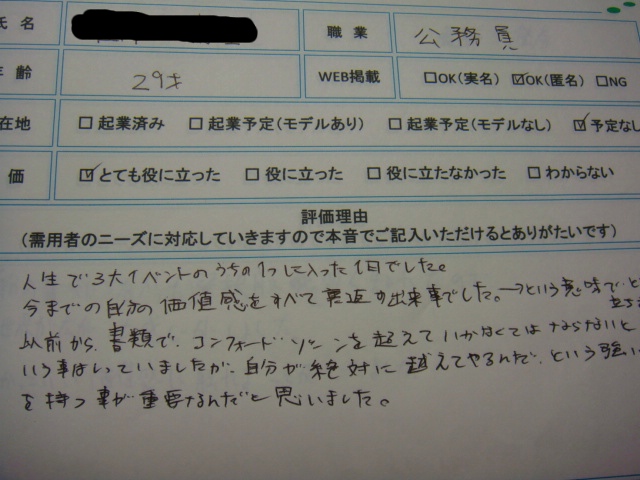 氏名
職業 公務員
年齢 29才 WEB掲載 □OK(実名) ☑OK(匿名) □NG
在地 □起業済み □起業予定(モデルあり) □起業予定(モデルなし) ☑予定なし
価 ☑とても役に立った □役に立った □役に立たなかった □わからない
評価理由
(需用者のニーズに対応していきますので本音でご記入いただけるとありがたいです)
人生で3大イベントのうちの1つに入った1日でした。
今までの自分の価値感をすべて裏返す出来事でした。→という意味で
以前から、書類で、コンフォードゾーンを超えていかなくてはならないと
いう事はしっていましたが、自分が絶対に越えてやるんだ、という強い
を持つ事が重要なんだと思いました。